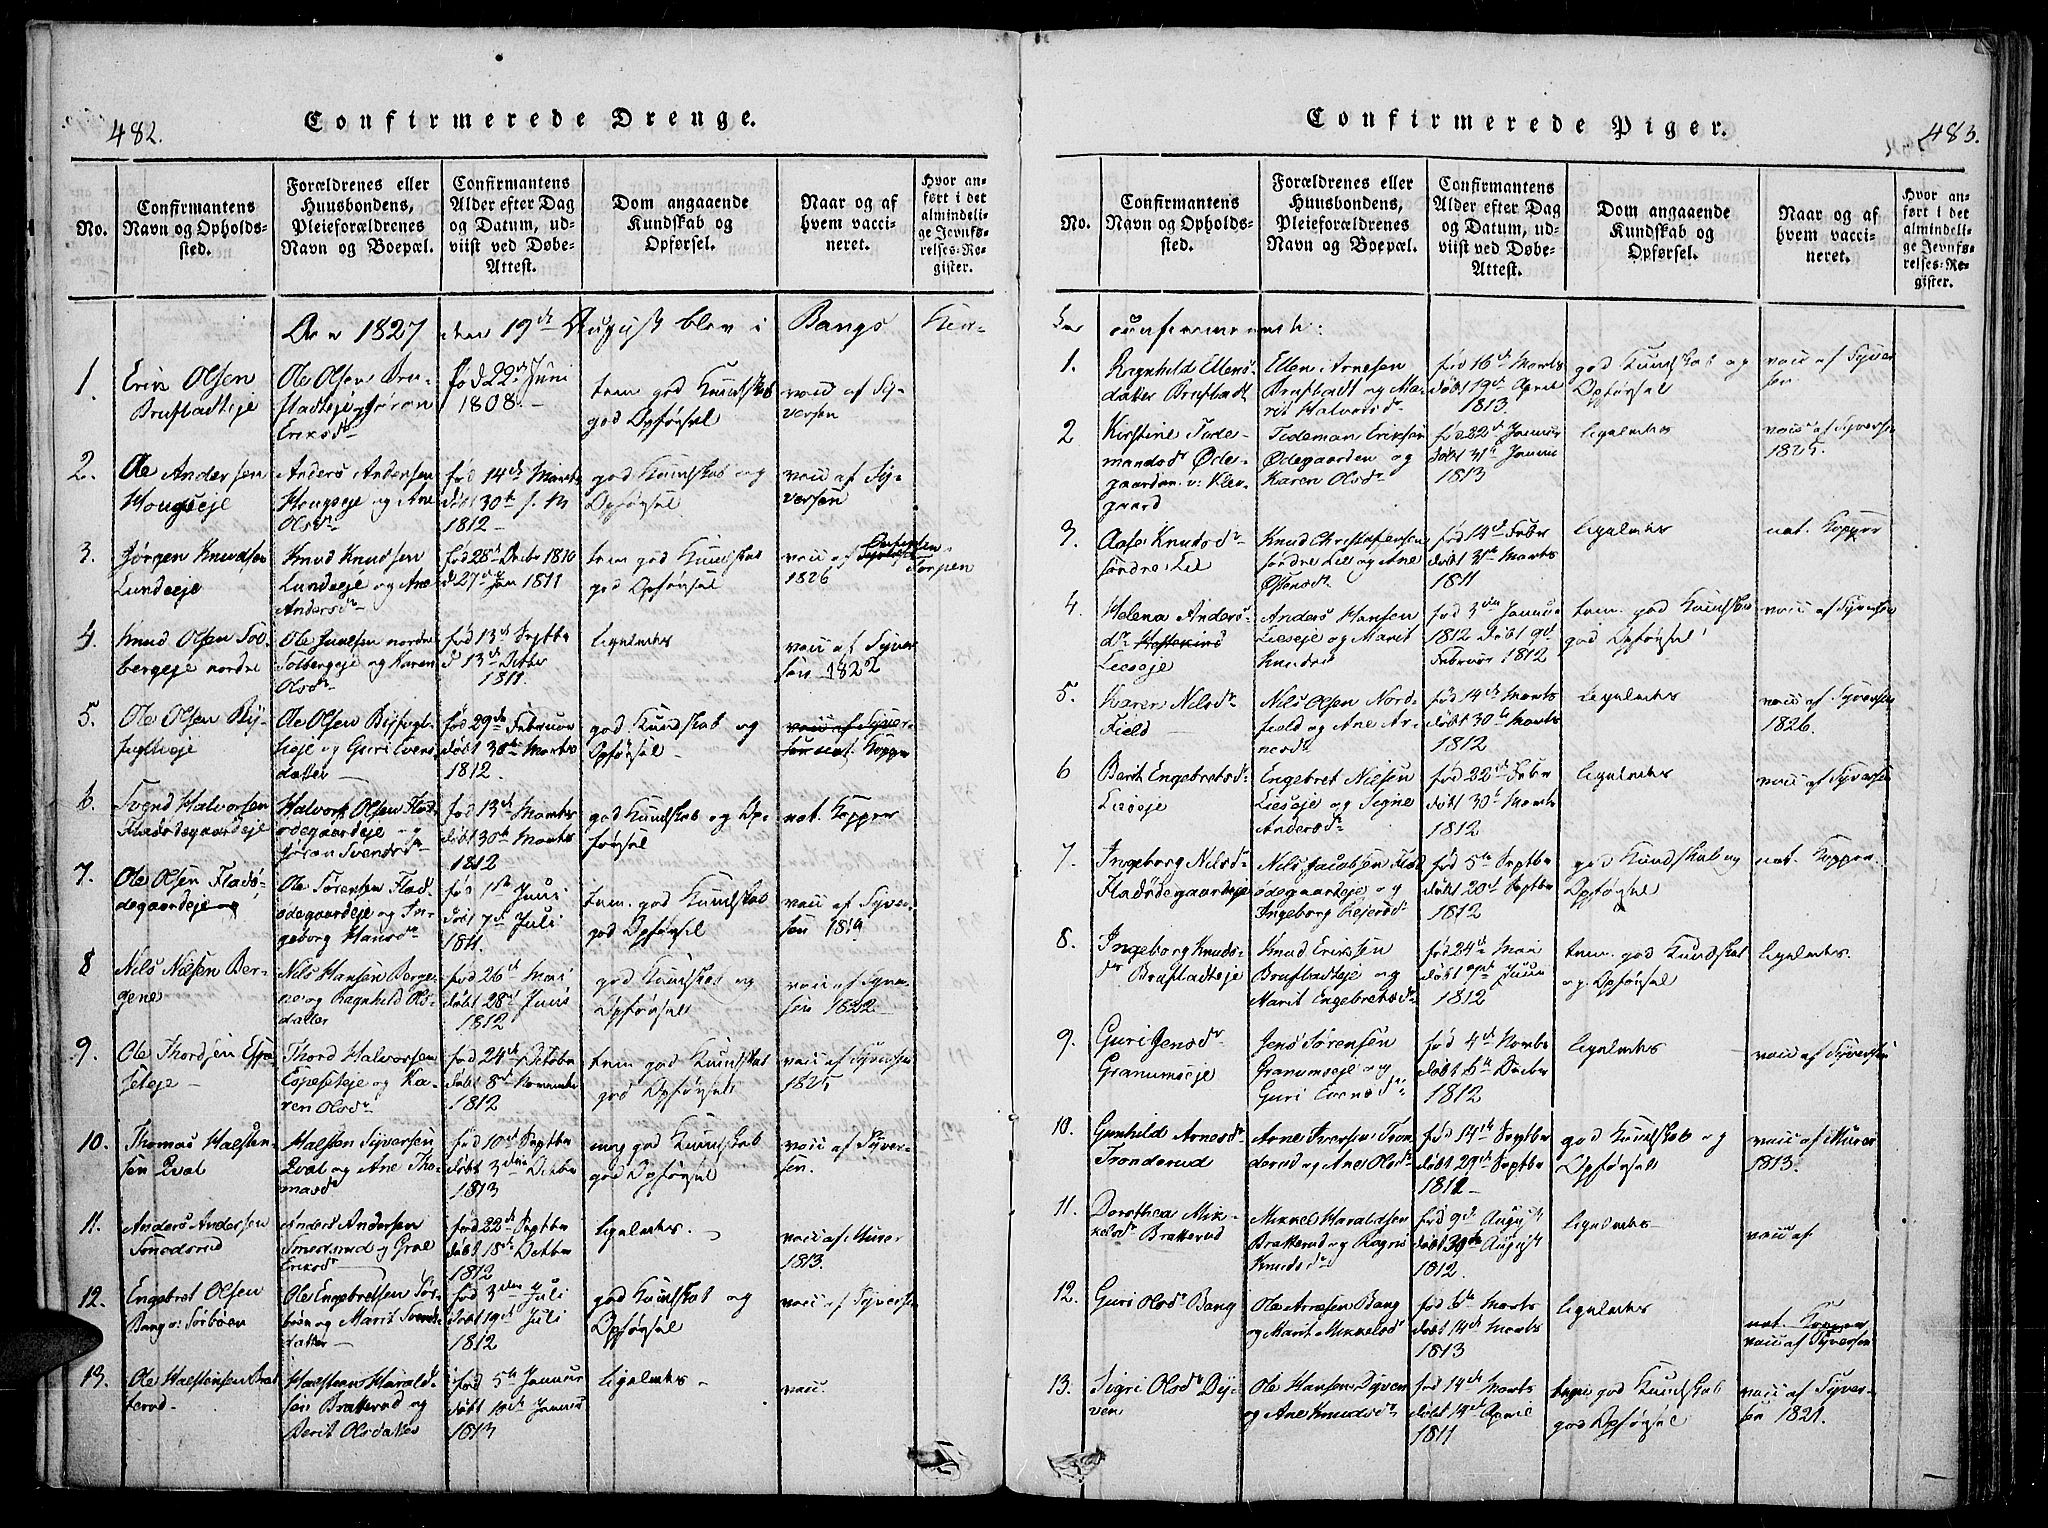 482.
Confirmerede Drenge.
No.
Confirmantens
Navn og Opholds-
sted.
Forældrenes eller
Huusbondens,
Pleieforældrenes
Navn og Boepæl.
Confirmantens
Alder efter Dag
og Datum, ud-
viist ved Døbe-
Attest.
Dom angaaende
Kundskab og
Opførsel.
Naar og af
hvem vacci-
neret.
Hvor an-
ført i det
almindeli-
ge Jevnfø-
relses-Re-
gister.
1827 den 19de August blev i Bangs
1.
Erik Olsen
Brufladteje
Ole Olsen Bru-
fladteje og Jøran
Eriksdr
fød 22d Juni
1808.
tem. god Kundskab
god Opførsel
vacc af Sy-
versen
2.
Ole Andersen
Hougseje
Anders Andersen
Hougseje og Ane
Olsdr
fød 14de Marts
døbt 30te s. M
1812
god Kundskab og
Opførsel
vacc af Sy-
versen
3.
Jørgen Knudsen
Lundeeje
Knud Knudsen
Lundeeje og Ane
Andersdr
fød 28de Decbr 1810
d 27de Jan 1811
tem god Kundskab
god Opførsel
vacc af
1826
4.
Knud Olsen Sol-
bergeje nordre
Ole Juelsen nordre
Solbergeje og Karen
Olsdr
fød 13de Septbr
d 13de Octbr
1811.
ligeledes
vacc af Syver
sen 1822
5.
Ole Olsen
Ole Olsen
heje og Guri Ivers
datter
fød 29de Februar
døbt 30te Marts
1812.
god Kundskab og
Opførsel
vacc af Syver-
sen nat. Kopper
6.
Svend Halvorsen
Fladødegaardeje
Halvor Olsen Flad-
ødegaardeje og
Jøran Svendsdr
fød 13de Marts
døbt 30te Marts
1812
god Kundskab og Op-
førsel
nat. Kopper
7.
Ole Olsen Fladø-
degaardeje
Ole Sørensen Flad-
ødegaardeje og In-
geborg Hansdr
fød 1ste Juni
døbt 7d Juli
1811.
tem. god Kundskab
god Opførsel
vacc af Syver-
sen 1819
8
Nils Nilsen Ber-
gene
Nils Hansen Berge
ne og Ragnhild Ols-
datter
fød 26de Mai
døbt 28de Juni
1812
god Kundskab og
Opførsel
vacc af Syver-
sen 1822
9.
Ole Thordsen Espe-
seteje
Thord Halvorsen
Espeseteje og Ka-
ren Olsdr
fød 24de Octobr
døbt 8d Novembr
1812
tem god Kundskab
god Opførsel
vacc af Syversen
1825
10.
Thomas Halsten-
sen Qval
Halsten Syversen
Qval og Ane Tho-
masdr
fød 10de Septbr
døbt 3die Octbr
1813
meg god Kundskab
god Opførsel
vacc af Syver-
sen.
11.
Anders Andersen
Smedsrud
Anders Andersen
Smedsrud og Groe
Eriksdr
fød 22de Septbr
døbt 18de Octbr
1812
ligeledes.
vacc af Murer
1813.
12.
Engebret Olsen
Bang v: Sørbøen
Ole Engebretsen Sør-
bøen og Marit Svends
datter
fød 3die Juli
døbt 19de Juli
1812
god Kundskab og
Opførsel
vacc af Syversen
13.
Ole Halstensen Brat
terud
Halsteen Harald-
sen Bratterud og
Berit Olsdatter
fød 5te Januar
døbt 10de Januar
1813
ligeledes
vacc.
483.
Confirmerede Piger.
No.
Confirmantens
Navn og Opholds-
sted.
Forældrenes eller
Huusbondens,
Pleieforældrenes
Navn og Boepæl.
Confirmantens
Alder efter Dag
og Datum, ud-
viist ved Døbe-
Attest.
Dom angaaende
Kundskab og
Opførsel.
Naar og af
hvem vacci-
neret.
Hvor an-
ført i det
almindeli-
ge Jevnfø-
relses-Re-
gister.
1.
Ragnhild Ellens-
datter Brufladt
Ellen Arnesen
Brufladt og Ma-
rit Halvorsdr
fød 16de Marts
døbt 19de April
1813.
god Kundskab og
Opførsel
vacc af Syver
sen.
2
Kirstine Tide-
mandsdr Øde-
gaarden v: Klev-
gaard
Tideman Eriksen
Ødegaarden og
Karen Olsdr
fød 22de Januar
døbt 31te Januar
1813
ligeledes
vacc af Syversen
1825.
3.
Aase Knudsdr
søndre Lie
Knud Christofersen
søndre Lie og Ane
Ostensdr
fød 14de Febr
døbt 31te Marts
1811
ligeledes
nat. Kopper
4.
Helena Anders-
dr
Lieseje
Anders Hansen
Lieseje og Marit
Knudsdr
fød 3die Januar
1812 døbt 9d
Februar 1812
tem. god Kundskab
god Opførsel
vacc af Syversen
5.
Karen Nilsdr
Field
Nils Olsen Nord-
field og Ane Ar-
nesdr
fød 14de Marts
døbt 30te Marts
1812
ligeledes
vacc af Syversen
1826.
6
Berit Engebretsdr
Lieseje
Engebret Nilsen
Lieseje og Signe
Andersdr
fød 22de Febr
døbt 30te Marts
1812
ligeledes
vacc af Syversen
7.
Ingeborg Nilsdr
Fladødegaardeje
Nils Jacobsen Flad
ødegaardeje og
Ingeborg Eiersdr
fød 5te Septbr
døbt 20de Septbr
1812
god Kundskab og
Opførsel
nat. Kopper.
8.
Ingeborg Knuds-
dr Brufladteje
Knud Eriksen
Brufladteje og
Marit Engebretsdr
fød 24de Mai
døbt 7de Juni
1812
tem. god Kundskab
og Opførsel
ligeledes.
9.
Guri Jensdr
Granumseje
Jens Sørensen
Granumseje og
Guri Evensdr
fød 4de Novbr
døbt 6te Decbr
1812
ligeledes
vacc af Syversen
10.
Gunhild Arnesdr
Tronderud
Arne Iversen Tron
derud og Ane Olsdr
fød 14de Septbr
døbt 29de Septbr
1812
god Kundskab og
Opførsel
vacc af Murer
1813.
11.
Dorothea Mik-
kelsdr Bratterud
Mikkel Haraldsen
Bratterud og Ragni
Knudsdr
fød 9de August
døbt 30te August
1812.
ligeledes
vacc af
12.
Guri Olsdr Bang
Ole Arnesen Bang
og Marit Mikkelsdr
fød 6te Marts
døbt 14de Marts
1813
ligeledes
nat. Kopper
vacc af Syversen
13.
Sigri Olsdr Dy-
ven
Ole Hansen Dyven
og Ane Knudsdr
fød 14de Marts
døbt 14de April
1811
god Kundskab
god Opførsel
vacc af Syver-
sen 1821.